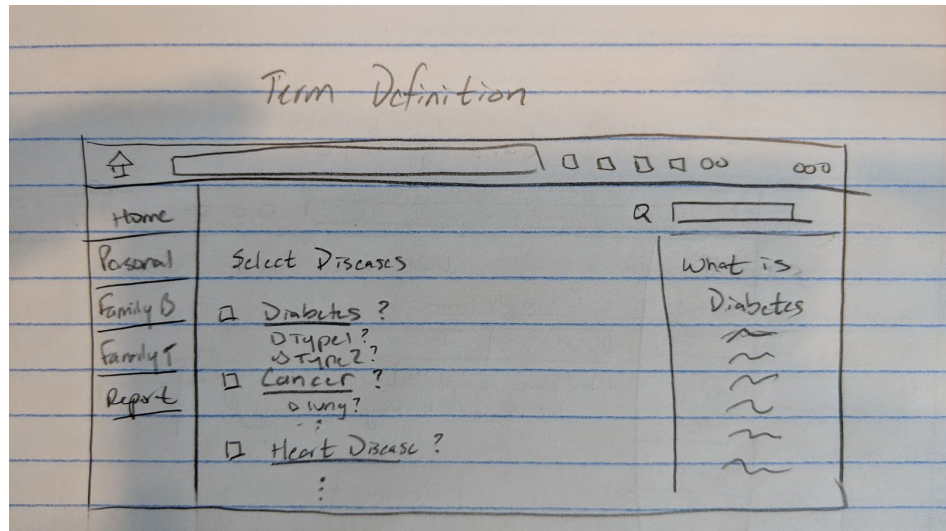 Term Definition
Home
Personal
Family B
Family T
Report
Select Diseases
Diabetes ?
Type 1?
Type 2?
Cancer ?
lung?
Heart Disease ?
What is
Diabetes